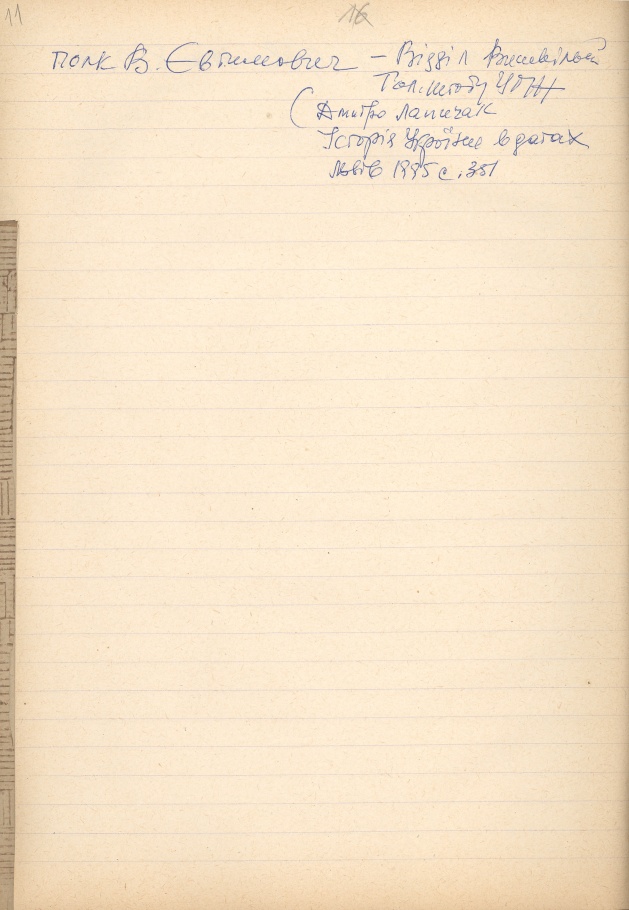 11
16
полк В. Євтимович – Відділ Вишкільний
Гол. штабу УНР
(Дмитро Лапичак
Історія України в датах
Львів 1995 с. 351